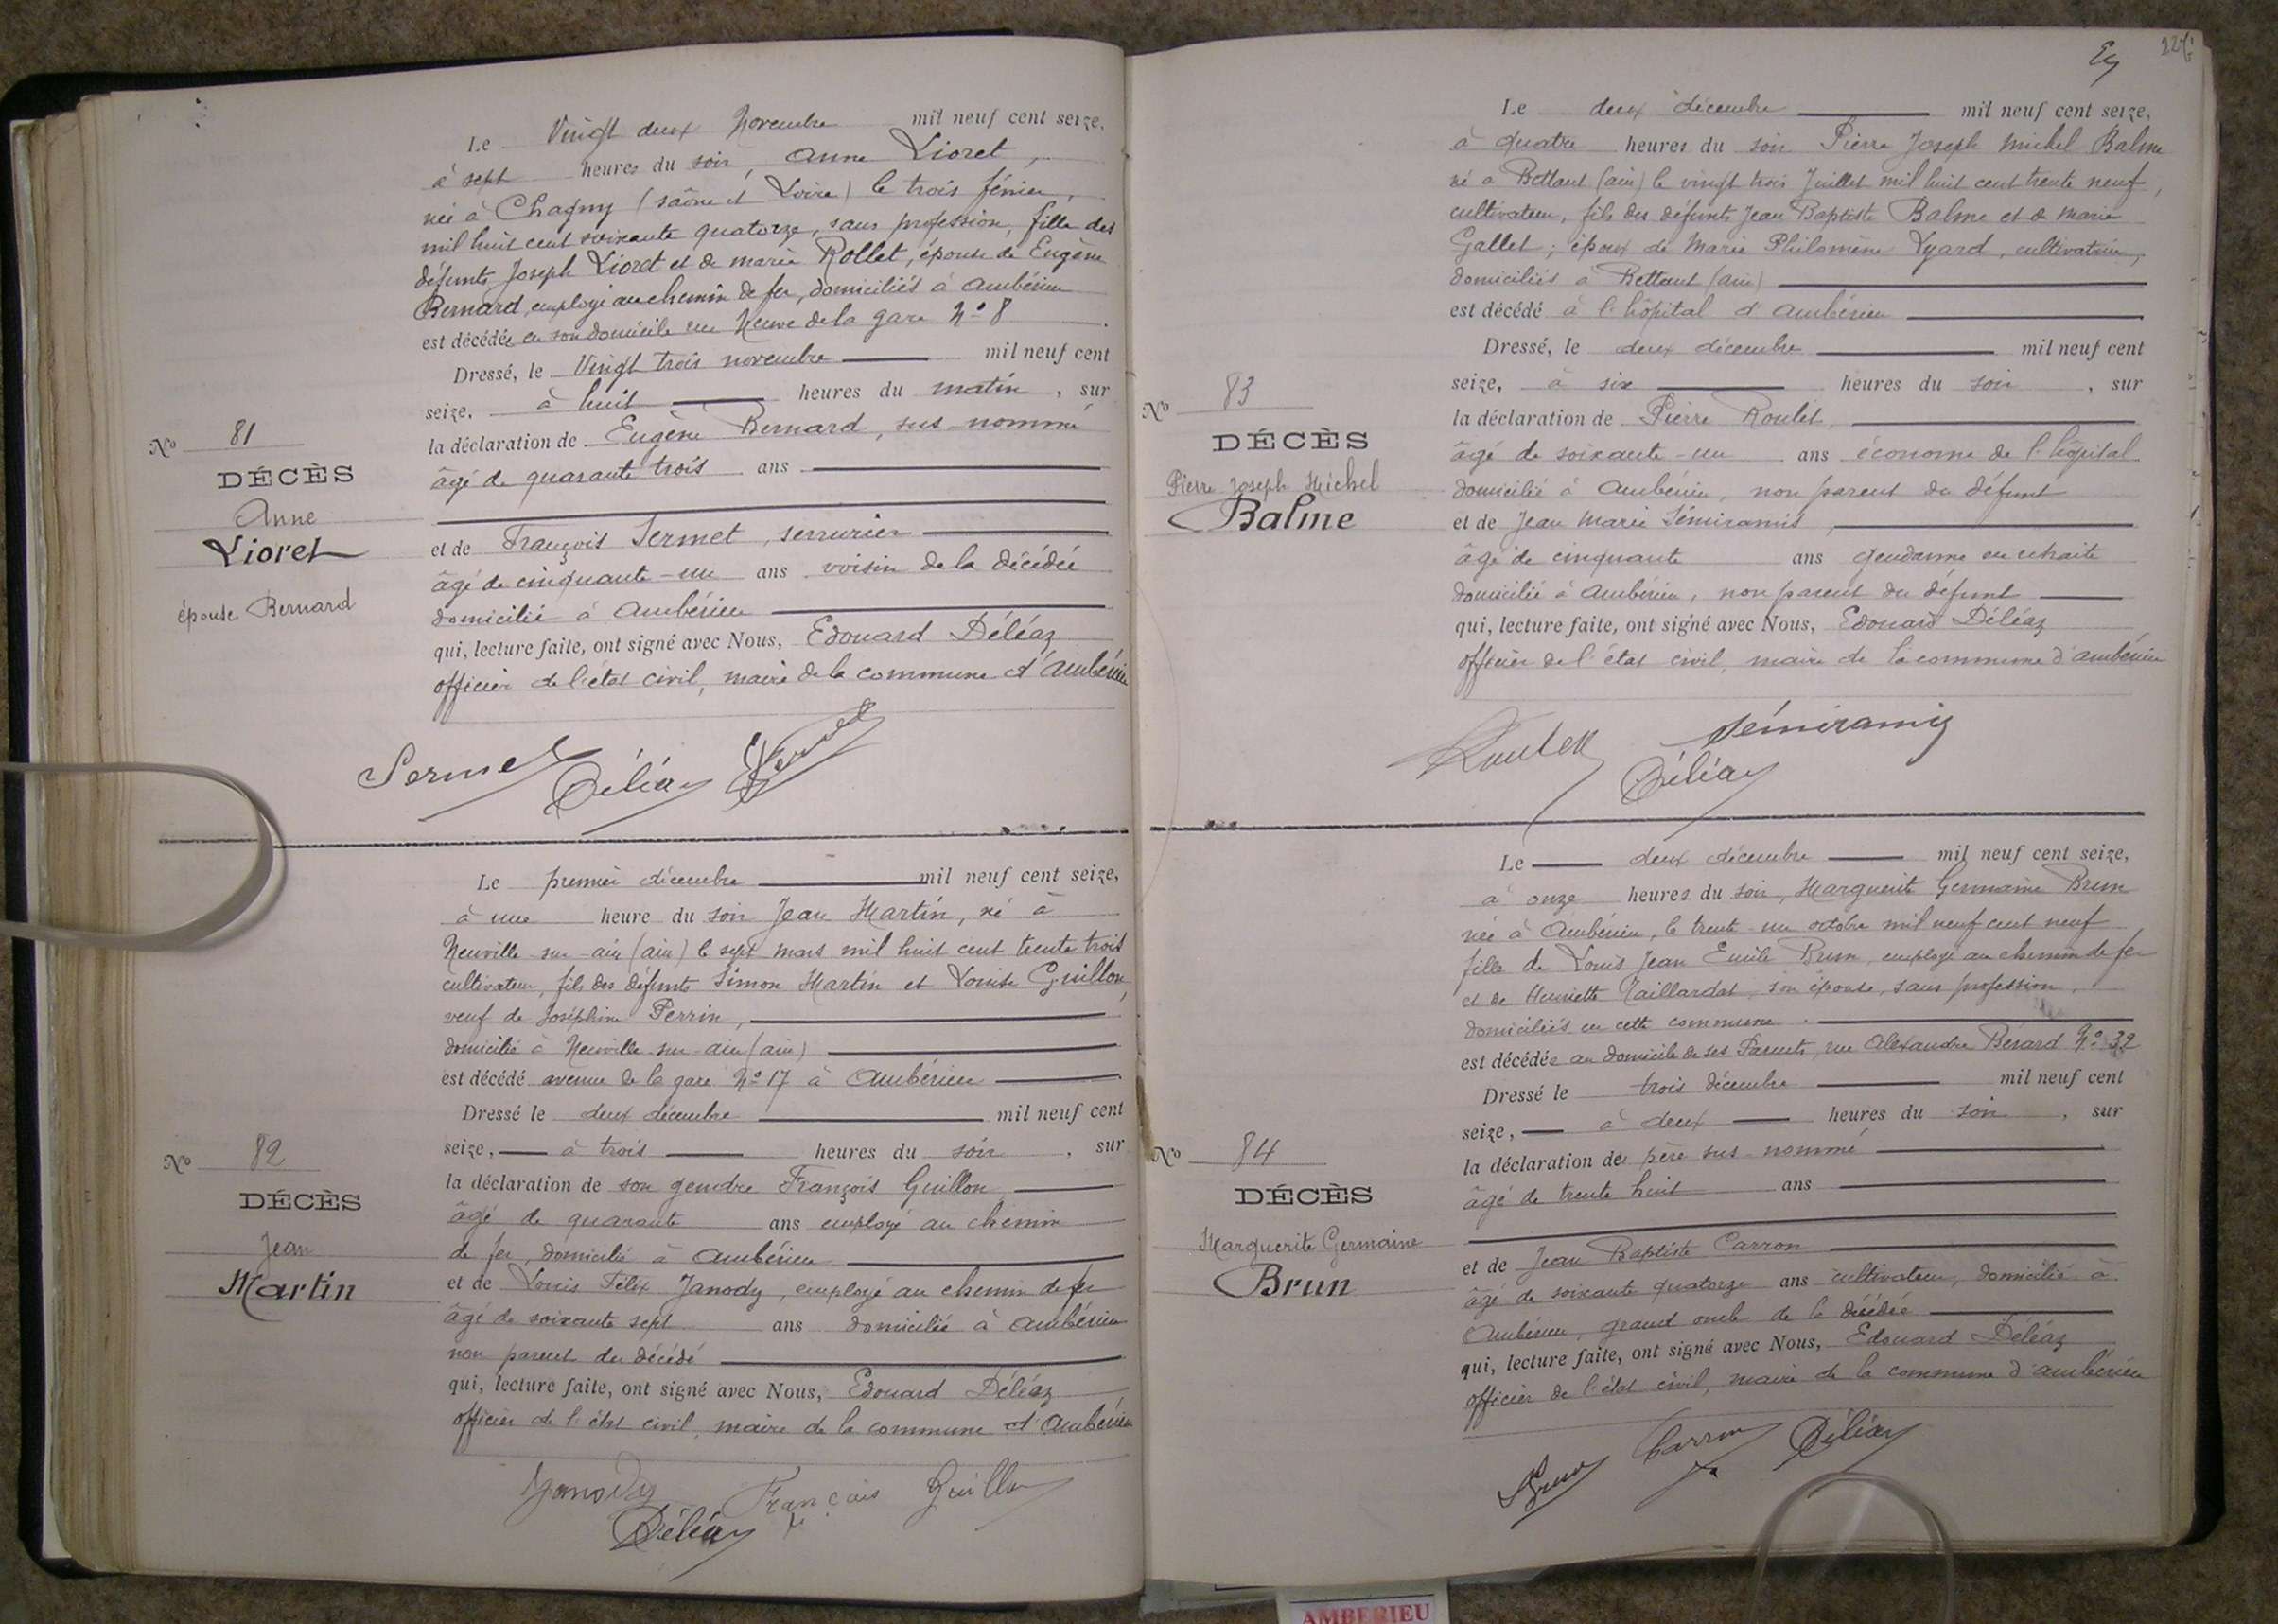 Le Vingt deux Novembre mil neuf cent seize,
à sept heures du soir, Anne Lioret,
née à Chagny (Saône et Loire) le trois février,
mil huit cent soixante quatorze, sans profession, fille des
défunts Joseph Lioret et de Marie Rollet, épouse de Eugène
Bernard, employé au chemin de fer, domiciliés à Ambérieu
est décédée en son domicile rue Neuve de la gare No 8
Dressé, le Vingt trois novembre mil neuf cent
seize, à huit heures du matin, sur
la déclaration de Eugène Bernard, sus-nommé
âgé de quarante trois ans
et de François Sermet, serrurier
âgé de cinquante-un ans voisin de la décédée
domicilié à Ambérieu
qui, lecture faite, ont signé avec Nous, Edouard Déléaz
officier de l'état civil, maire de la commune d'Ambérieu
No 81
DÉCÈS
Anne
Lioret
épouse Bernard
Sermet Déléaz Bernard
Le premier décembre mil neuf cent seize,
à une heure du soir Jean Martin, né à
Neuville-sur-ain (ain) le sept mars mil huit cent trente trois
cultivateur, fils des défunts Simon Martin et Louise Guillon,
veuf de Joséphine Perrin,
domicilié à Neuville-sur-ain (ain)
est décédé avenue de la gare No 17 à Ambérieu
Dressé le deux décembre mil neuf cent
seize, à trois heures du soir, sur
la déclaration de son gendre François Guillon
âgé de quarante ans employé au chemin
de fer, domicilié à Ambérieu
et de Louis Félix Janody, employé au chemin de fer
âgé de soixante sept ans domicilié à Ambérieu
non parent du décédé
qui, lecture faite, ont signé avec Nous, Edouard Déléaz
officier de l'état civil, maire de la commune d'Ambérieu
No 82
DÉCÈS
Jean
Martin
Janody François Guillon
Déléaz
Le deux décembre mil neuf cent seize,
à quatre heures du soir Pierre Joseph Michel Balme
né à Bettant (ain) le vingt trois Juillet mil huit cent trente neuf,
cultivateur, fils des défunts Jean Baptiste Balme et de Marie
Gallet; époux de Marie Philomène Lyard, cultivatrice,
domiciliés à Bettant (ain)
est décédé à l'hôpital d'Ambérieu
Dressé, le deux décembre mil neuf cent
seize, à six heures du soir, sur
la déclaration de Pierre Roulet,
âgé de soixante-un ans économe de l'hôpital
domicilié à Ambérieu, non parent du défunt
et de Jean Marie Sémiramis,
âgé de cinquante ans gendarme en retraite
domicilié à Ambérieu, non parent du défunt
qui, lecture faite, ont signé avec Nous, Edouard Déléaz
officier de l'état civil, maire de la commune d'ambérieu
No 83
DÉCÈS
Pierre Joseph Michel
Balme
Roulet Sémiramis
Déléaz
Le deux décembre mil neuf cent seize,
à onze heures du soir, Marguerite Germaine Brun
née à Ambérieu, le trente-un octobre mil neuf cent neuf
fille de Louis Jean Emile Brun, employé au chemin de fer
et de Henriette Taillardat, son épouse, sans profession,
domiciliés en cette commune.
est décédée au domicile de ses Parents, rue Alexandre Bérard No 32
Dressé le trois décembre mil neuf cent
seize, à deux heures du soir, sur
la déclaration de père sus-nommé
âgé de trente huit ans
et de Jean Baptiste Carron
âgé de soixante quatorze ans cultivateur, domicilié à
Ambérieu, grand oncle de la décédée
qui, lecture faite, ont signé avec Nous, Edouard Déléaz
officier de l'état civil, maire de la commune d'ambérieu
No 84
DÉCÈS
Marguerite Germaine
Brun
Brun Carron Déléaz
AMBERIEU